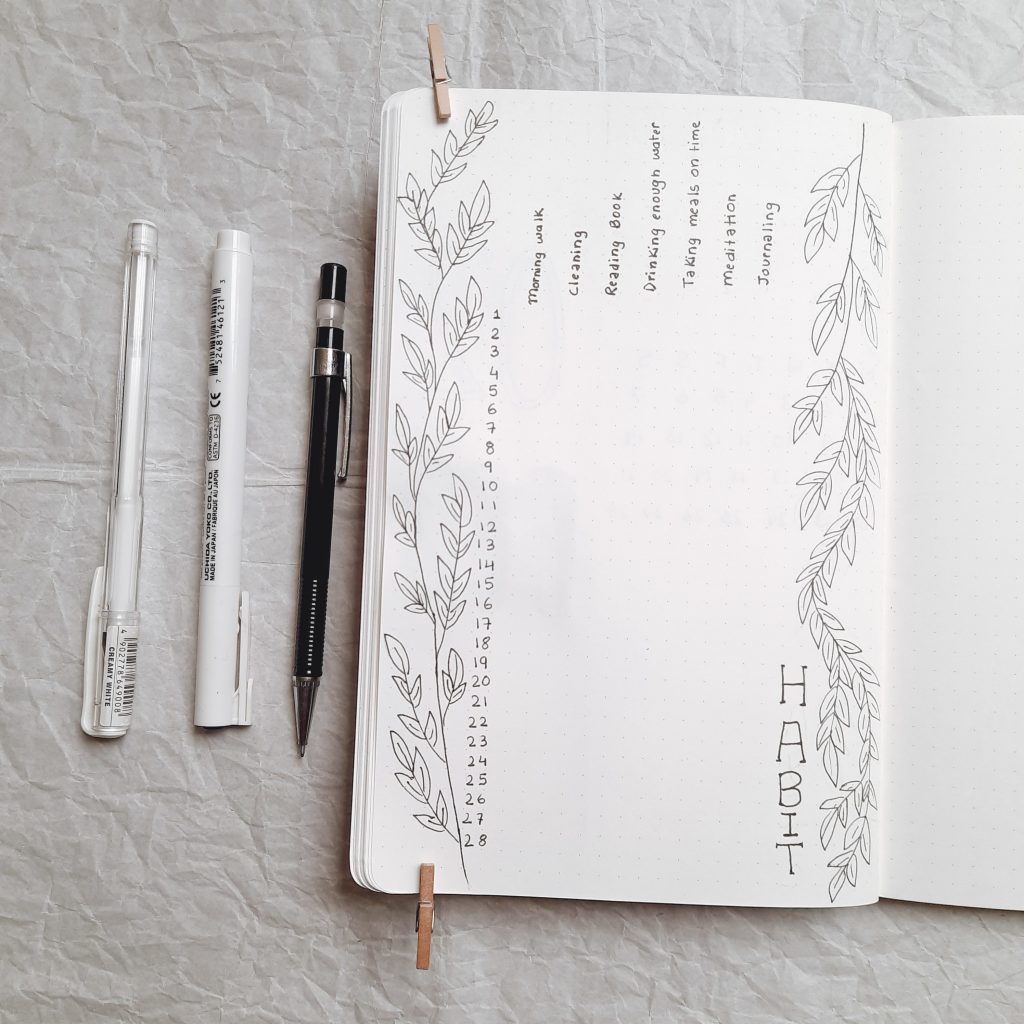 4 902778 649008
CREAMY WHITE
7 52481 46121 3
CE
CONFORMS TO
ASTM D-4236
UCHIDA YOKO CO.,LTD.
MADE IN JAPAN / FABRIQUE AU JAPON
Morning walk
Cleaning
Reading Book
Drinking enough water
Taking meals on time
Meditation
Journaling
1
2
3
4
5
6
7
8
9
10
11
12
13
14
15
16
17
18
19
20
21
22
23
24
25
26
27
28
HABIT